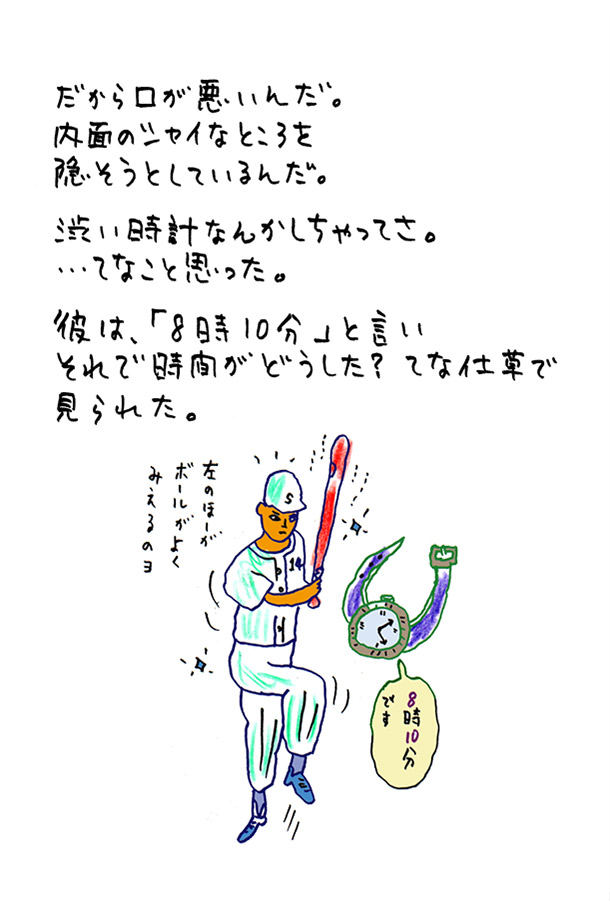 だから口が悪いんだ。
内面のシャイなところを
隠そうとしているんだ。
渋い時計なんかしちゃってさ。
…てなこと思った。
彼は、「8時10分」と言い
それで時間がどうした? てな仕草で
見られた。
左のほーが
ボールがよく
みえるのヨ
S
14
8時10分
です